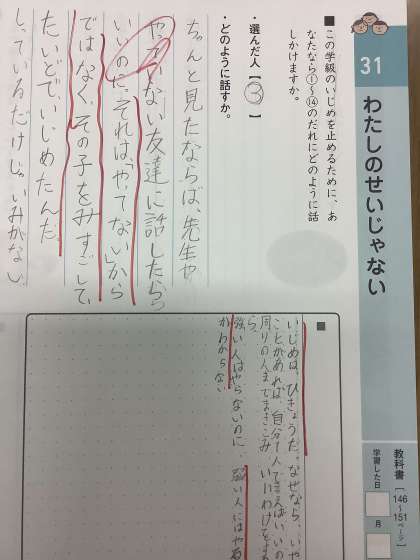 31
わたしのせいじゃない
教科書
[146〜151ページ]
学習した日
月
■この学級のいじめを止めるために、あ
なたなら①〜⑭のだれにどのように話
しかけますか。
・選んだ人【③】
・どのように話すか。
ちゃんと見たならば、先生や
やってない友達に話したらっ
いいのだ。それは、やってない」から
ではなく、その子をみすごして、
たいどでいじめたんだ。
しっているだけじゃいみがない。
■
いじめは、ひきょうだ。なぜなら、いや
ことがあれば、自分1人で言えばいいの
周りの人までまきこみ
ら、
強い人はやらないのに、弱い人にはやる
かわからない